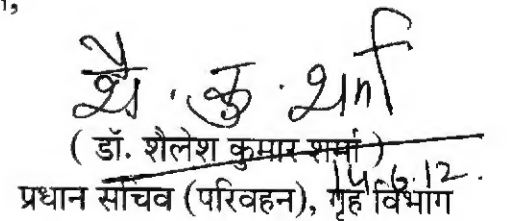 शै. कु. शर्मा
( डॉ. शैलेश कुमार शर्मा )
14.6.12.
प्रधान सचिव (परिवहन), गृह विभाग